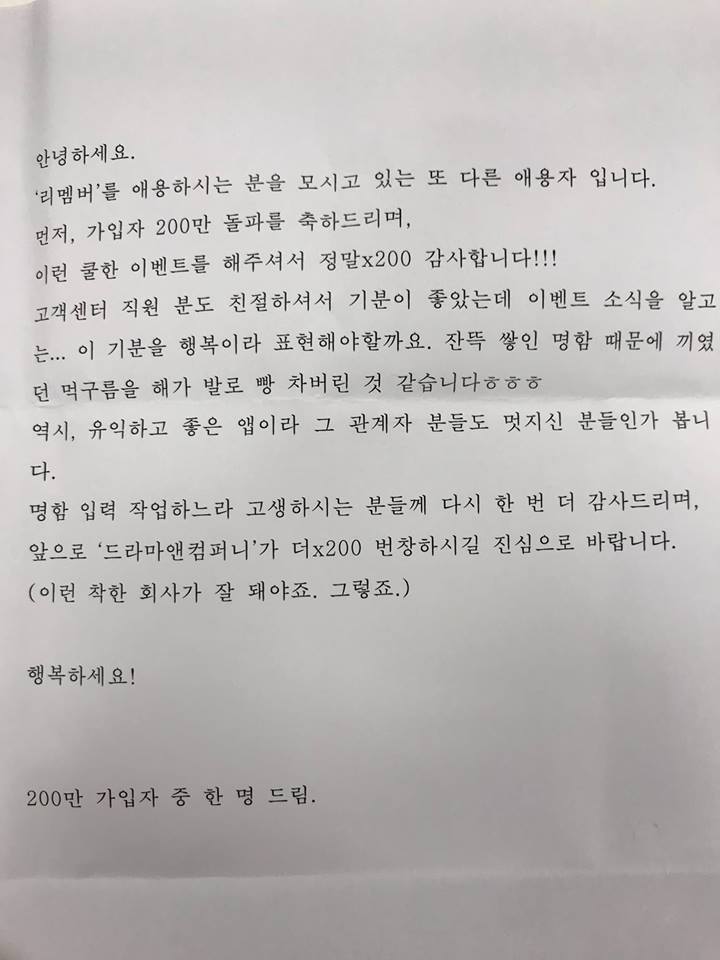 안녕하세요.
‘리멤버’를 애용하시는 분을 모시고 있는 또 다른 애용자 입니다.
먼저, 가입자 200만 돌파를 축하드리며,
이런 쿨한 이벤트를 해주셔서 정말x200 감사합니다!!!
고객센터 직원 분도 친절하셔서 기분이 좋았는데 이벤트 소식을 알고
는... 이 기분을 행복이라 표현해야할까요. 잔뜩 쌓인 명함 때문에 끼였
던 먹구름을 해가 발로 빵 차버린 것 같습니다ㅎㅎㅎ
역시, 유익하고 좋은 앱이라 그 관계자 분들도 멋지신 분들인가 봅니
다.
명함 입력 작업하느라 고생하시는 분들께 다시 한 번 더 감사드리며,
앞으로 ‘드라마앤컴퍼니’가 더x200 번창하시길 진심으로 바랍니다.
(이런 착한 회사가 잘 돼야죠. 그렇죠.)
행복하세요!
200만 가입자 중 한 명 드림.